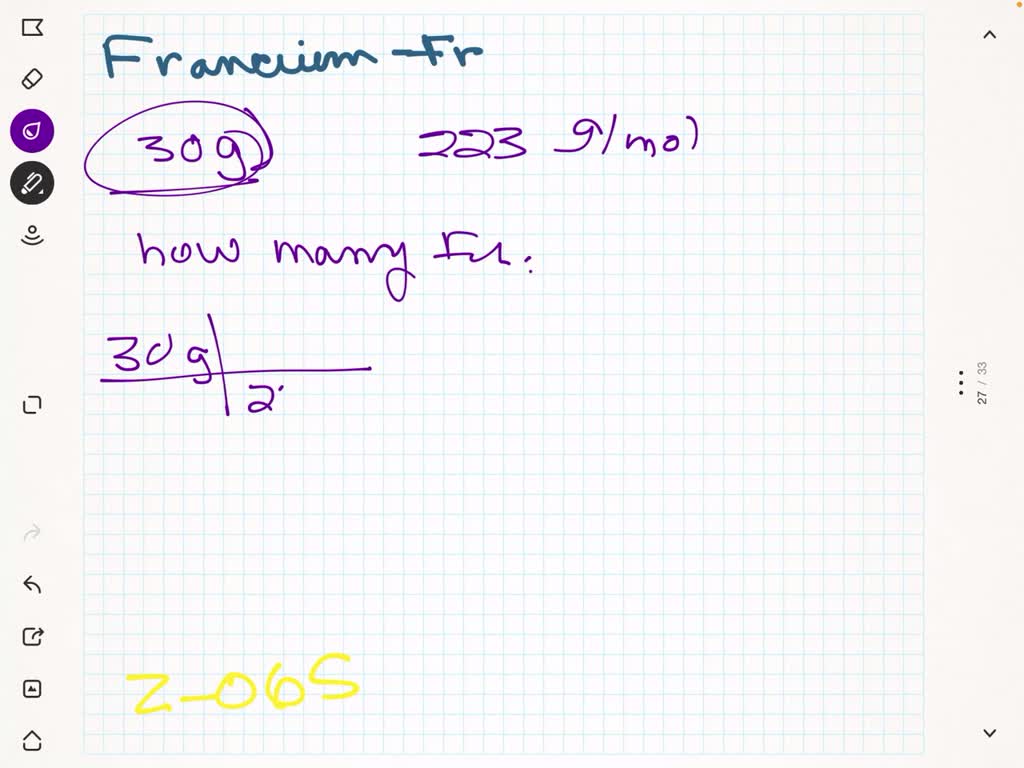 Francium - Fr
30g 223 g/mol
how many
30 g
2
Z-065
27 / 33